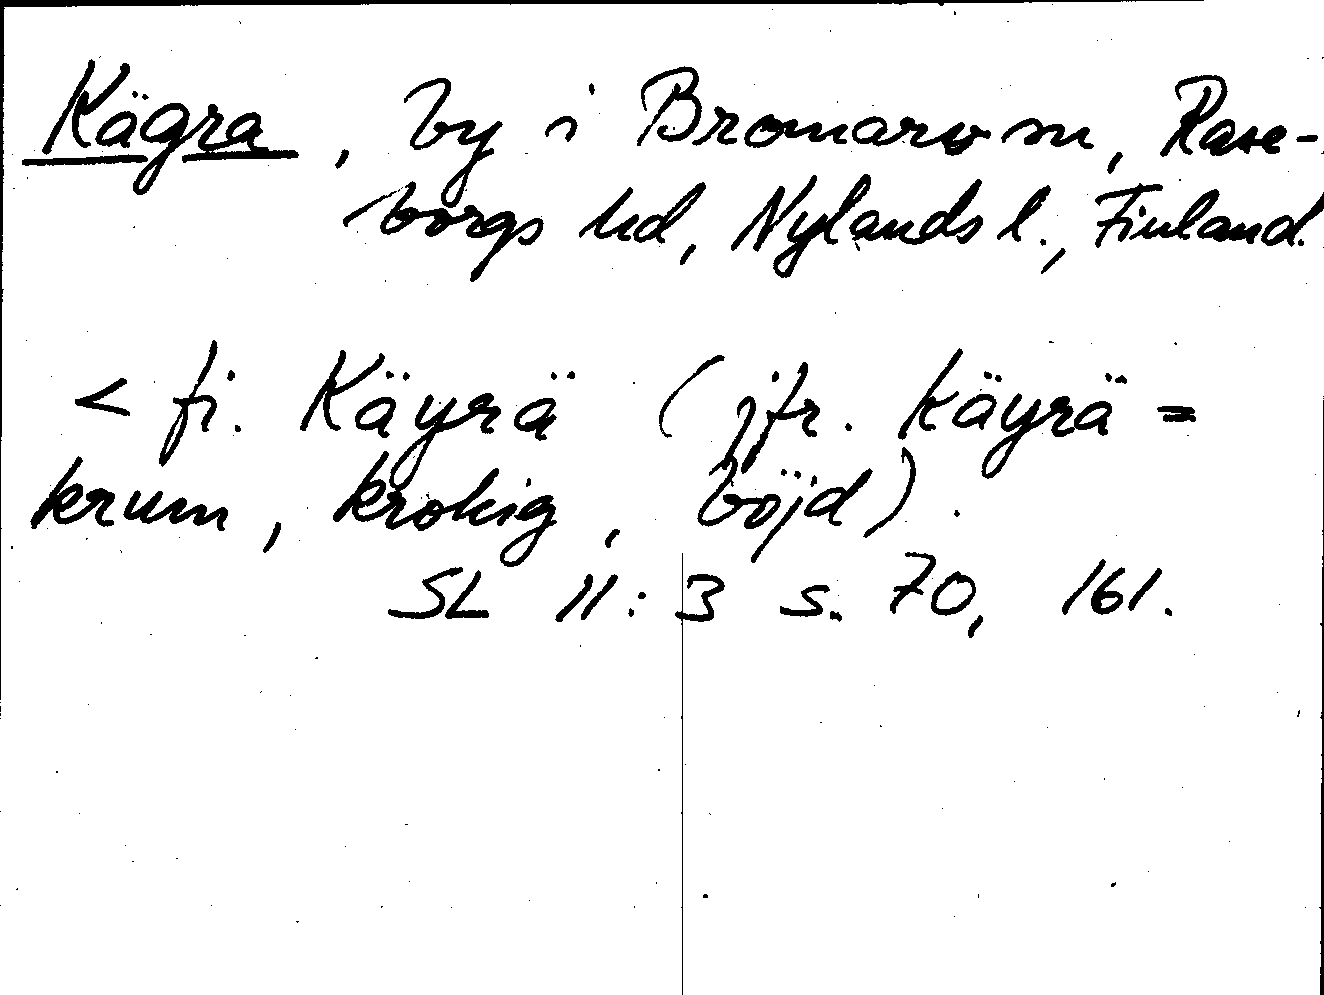 Kägra, by i Bromarv sn, Rase-
borgs hd, Nylands l., Finland.
< fi. Käyrä (jfr. käyrä =
krum, krokig, böjd).
SL 11:3 s. 70, 161.